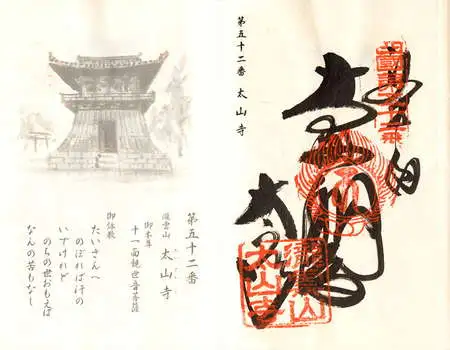 第五十二番 太山寺
太山寺
第五十二番
瀧雲山 太山寺
御本尊
十一面観世音菩薩
御詠歌
たいさんへ
のぼれば汗の
いでけれど
のちの世おもえば
なんの苦もなし